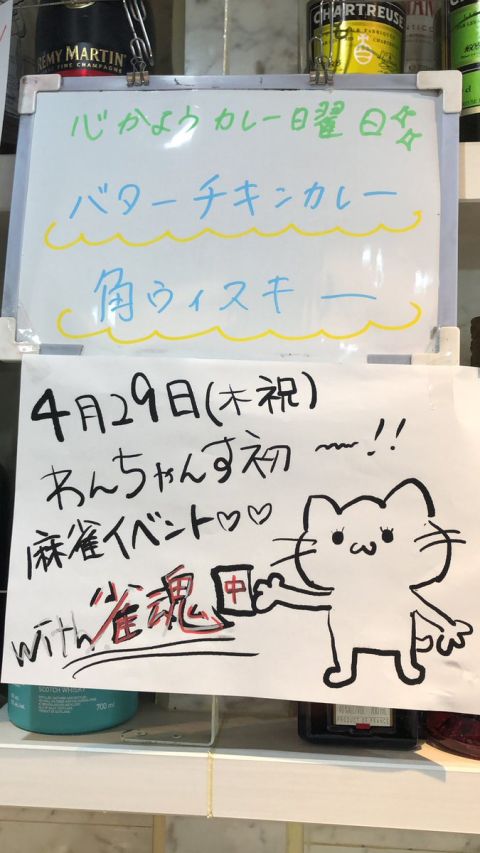 RÉMY MARTIN
FINE CHAMPAGNE
CHARTREUSE
心かようカレー日曜日☆☆
バターチキンカレー
角ウィスキー
4月29日(木祝)
わんちゃんす初〜!!
麻雀イベント♡♡
中
with雀魂
SCOTCH WHISKY
700 ml
PRODUCT OF FRANCE